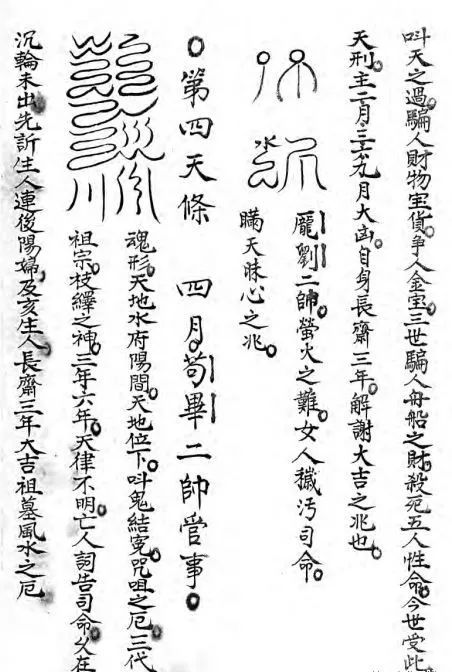 叫天之過騙人財物宝貨爭人金宝三世騙人舟船之財殺死五人性命今世受此
天刑主二月三五九月大凶自身長齋三年解謝大吉之兆也
龐劉二帥螢火之難女人穢污司命
瞞天昧心之兆
第四天條 四月苟畢二帥管事
魂形天地水府陽間天地位下叫鬼結冤咒咀之厄三代
祖宗枝繹之神三年六年天律不明亡人詞告司命久在
沉輪未出先訴生人連後陽婦及亥生人長齋三年大吉祖墓風水之厄